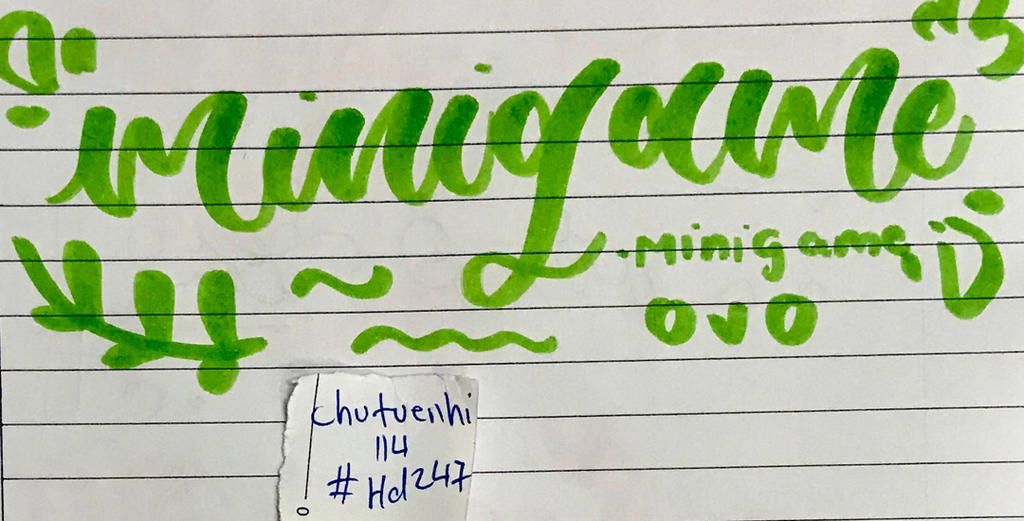 minigame
minigame
OVO
chutuenhi
114
#Hd247